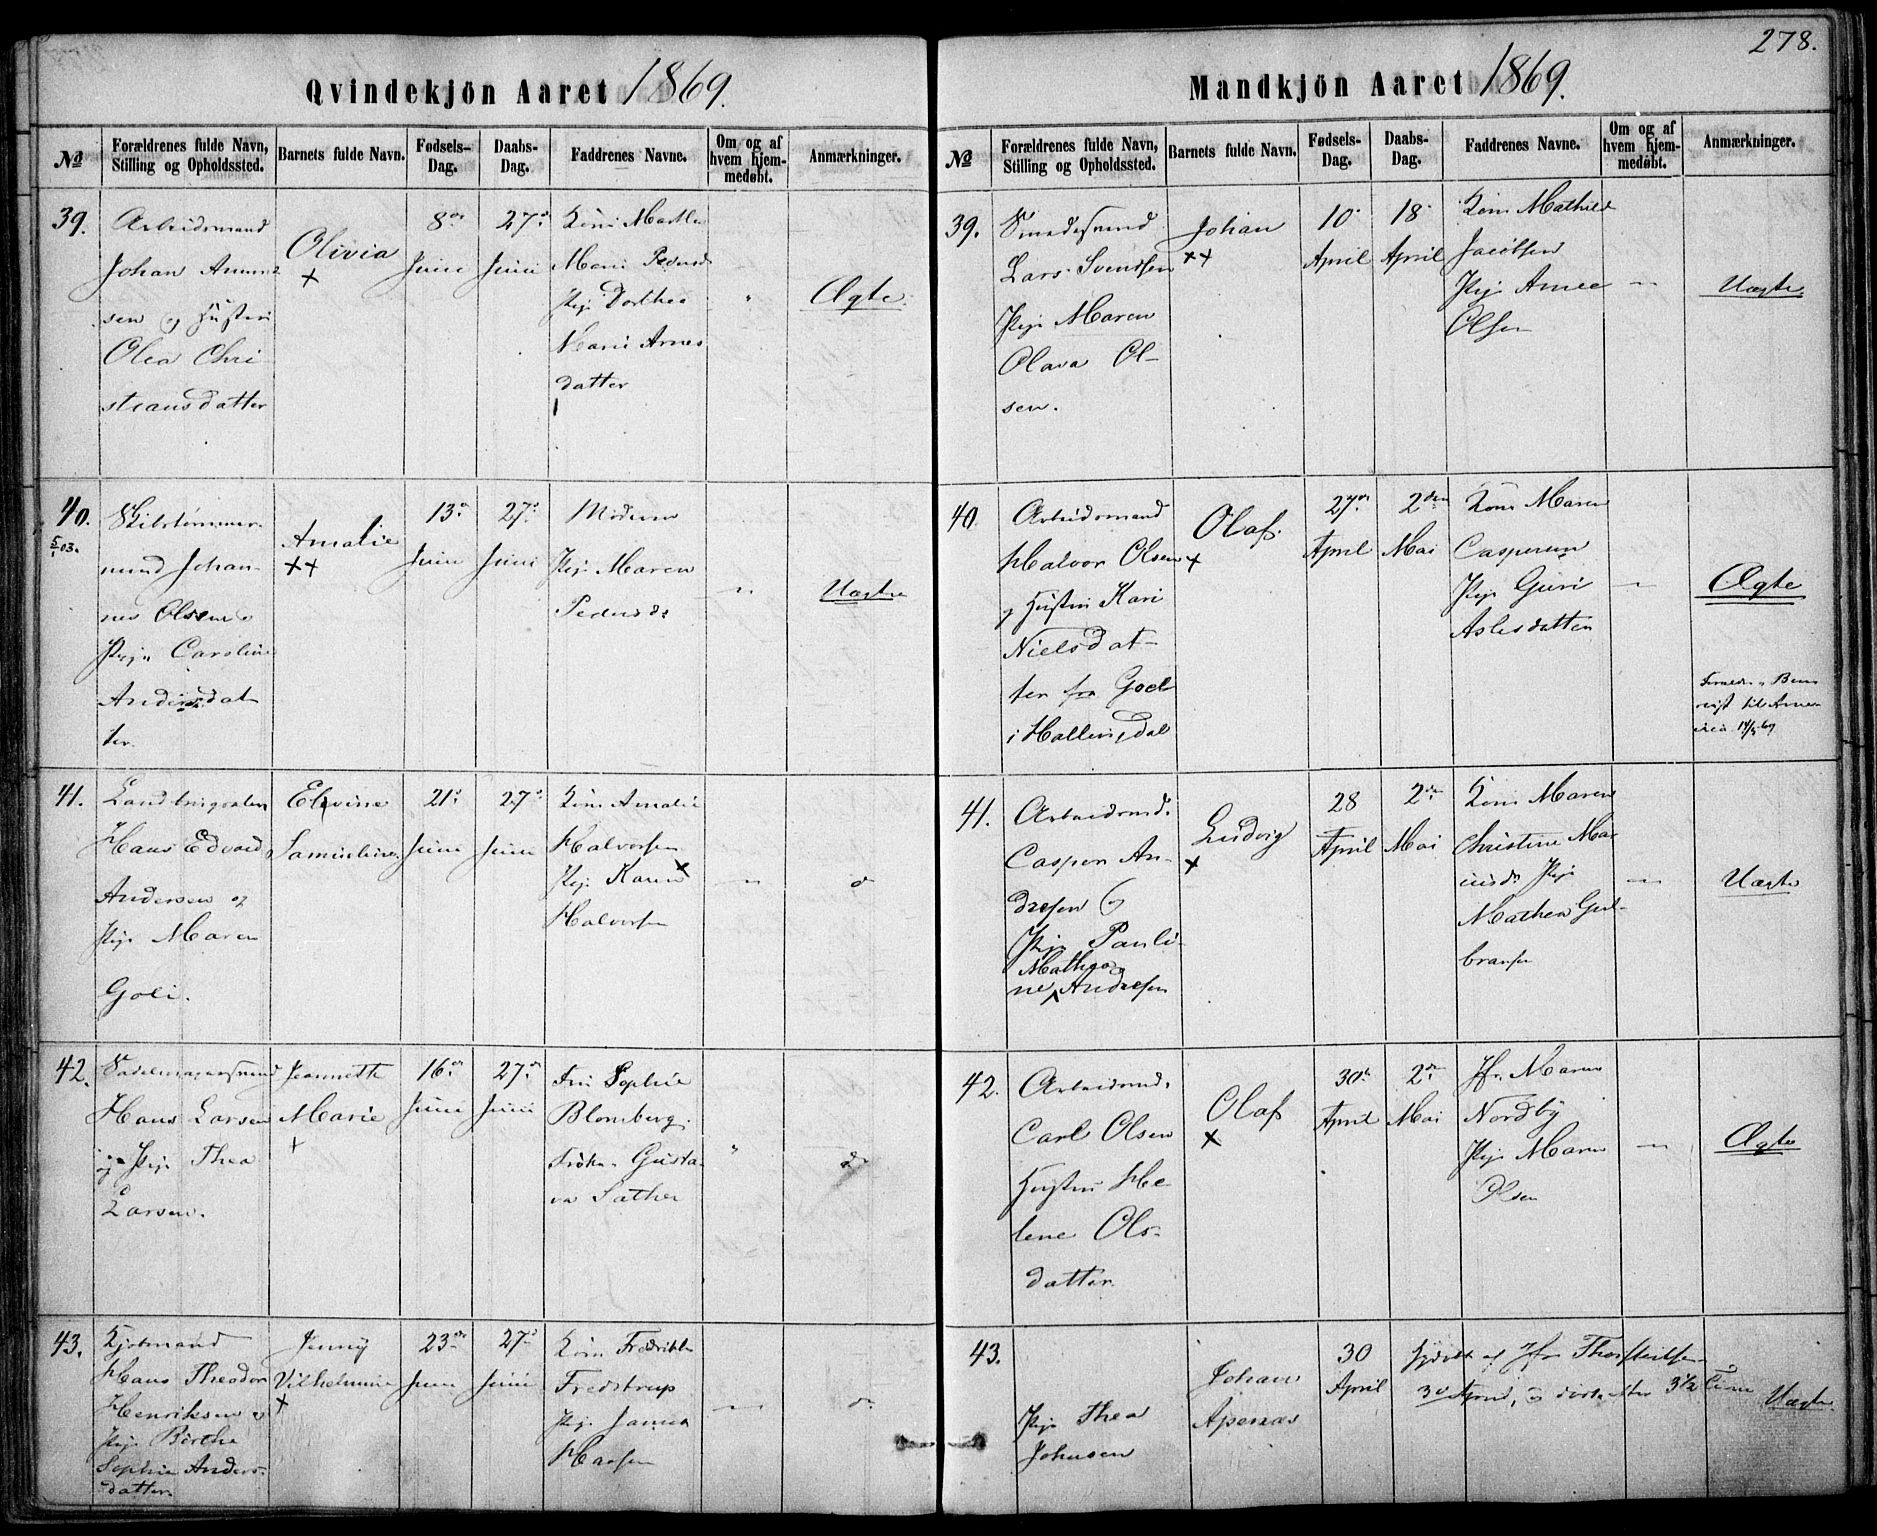 278.
Qvindekjön Aaret 1869.
№
Forældrenes fulde Navn,
Stilling og Opholdssted.
Barnets fulde Navn.
Fødsels-
Dag.
Daabs-
Dag.
Faddrenes Navne.
Om og af
hvem hjem-
medøbt.
Anmærkninger.
39.
Arbeidsmand
Johan
sen og Hustru
Olea Chri
stiansdatter
Olivia
+
8de
Juni
27de
Juni
Kone Marthe
Marie
Pige Dorthea
Marie Arnes
datter
Ægte
40.
5/1 03.
Johan-
nes Olsen
Pige Caroline
Anders dat
ter
Amalie
++
13de
Juni
27de
Juni
Moderen
Pige Maren
Uægte
41.
Hans Edvard
Andersen og
Pige Maren
Goli.
Elevine
21de
Juni
27de
Juni
Kone Amalie
Halvorsen
Pige Karen
Halvorsen
do
42.
Hans Larsen
og Pige Thea
Larsen.
Jeannette
Marie
+
16de
Juni
27de
Juni
Fru Sophie
Blomberg
Gusta
va Sather
do
43.
Kjøbmand
Hans Theodor
Henriksen og
Pige Birthe
Sophie Anders-
datter
Jenny
Vilhelmine
+
23de
Juni
27de
Juni
Kone Fredrikke
Fredstrup
Pige
Hansen
do
Mandkjön Aaret 1869.
№
Forældrenes fulde Navn,
Stilling og Opholdssted.
Barnets fulde Navn.
Fødsels-
Dag.
Daabs-
Dag.
Faddrenes Navne.
Om og af
hvem hjem-
medøbt.
Anmærkninger.
39.
Smedesvend
Lars Svendsen
Pige Maren
Olava Ol-
sen.
Johan
++
10
April
18
April
Kone Mathilde
Jacobsen
Pige
Olsen
Uægte
40.
Arbeidsmand
Halvor Olsen
og Hustru Kari
Nielsdat-
ter fra Goel
i Hallingdal
Olaf.
+
27de
April
2den
Mai
Kone Maren
Caspersen
Pige Guri
Aslesdatter
Ægte
41.
Arbeidsmd.
Casper An-
dresen og
Pige Pauli-
Mathea
ne Andresen
Ludvig
+
28
April
2den
Mai
Kone Maren
Christine Mar
Pige
Mathea Gul-
bransen
Uægte
42.
Arbeidsmd.
Carl Olsen
Hustru He
lene Ols-
datter
Olaf
+
30te
April
2den
Mai
Jfr. Maren
Nordby
Pige Maren
Olsen
Ægte
43.
Pige Thea
Johnsen
Johan
30
April
30 April, 3½ Time
Uægte